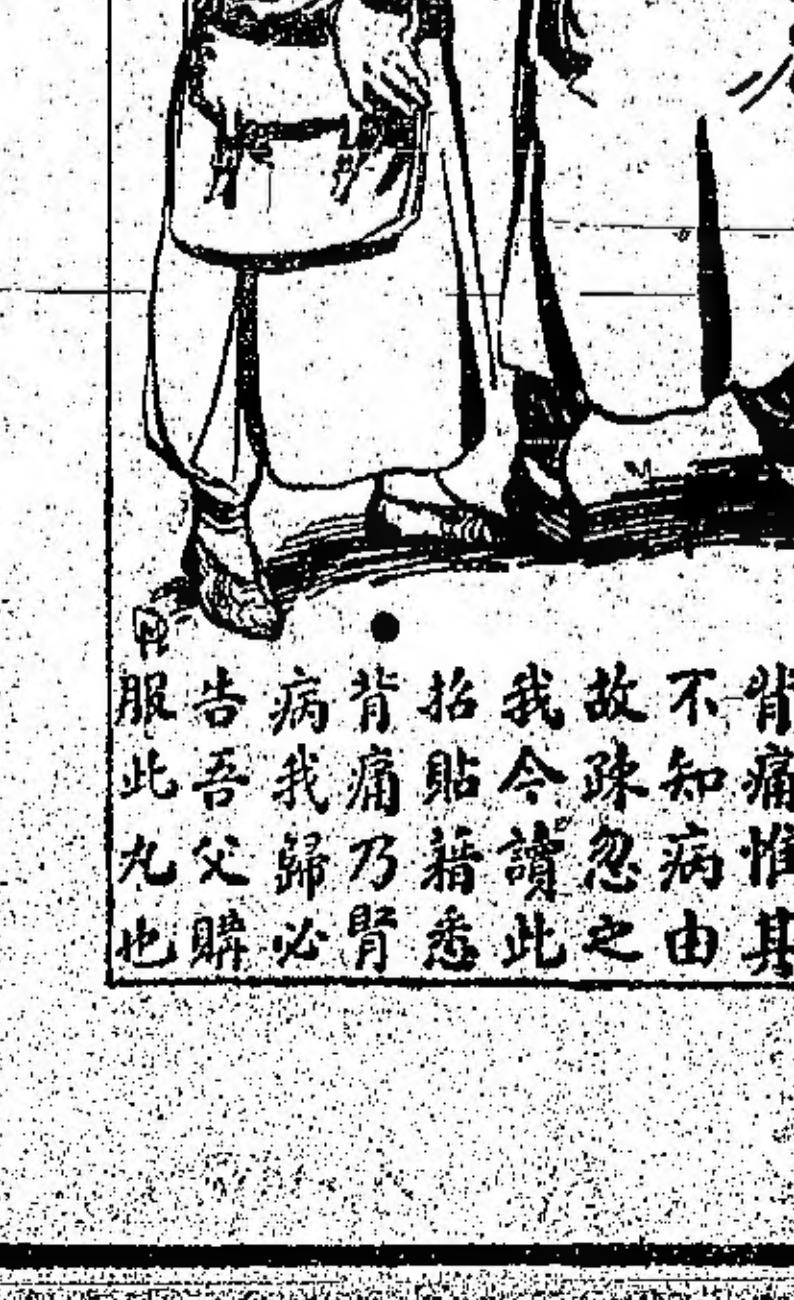 背痛惟其
不知病由
故疎忽之
我今讀此
招貼藉悉
背痛乃腎
病我歸必
告吾父購
服此丸也